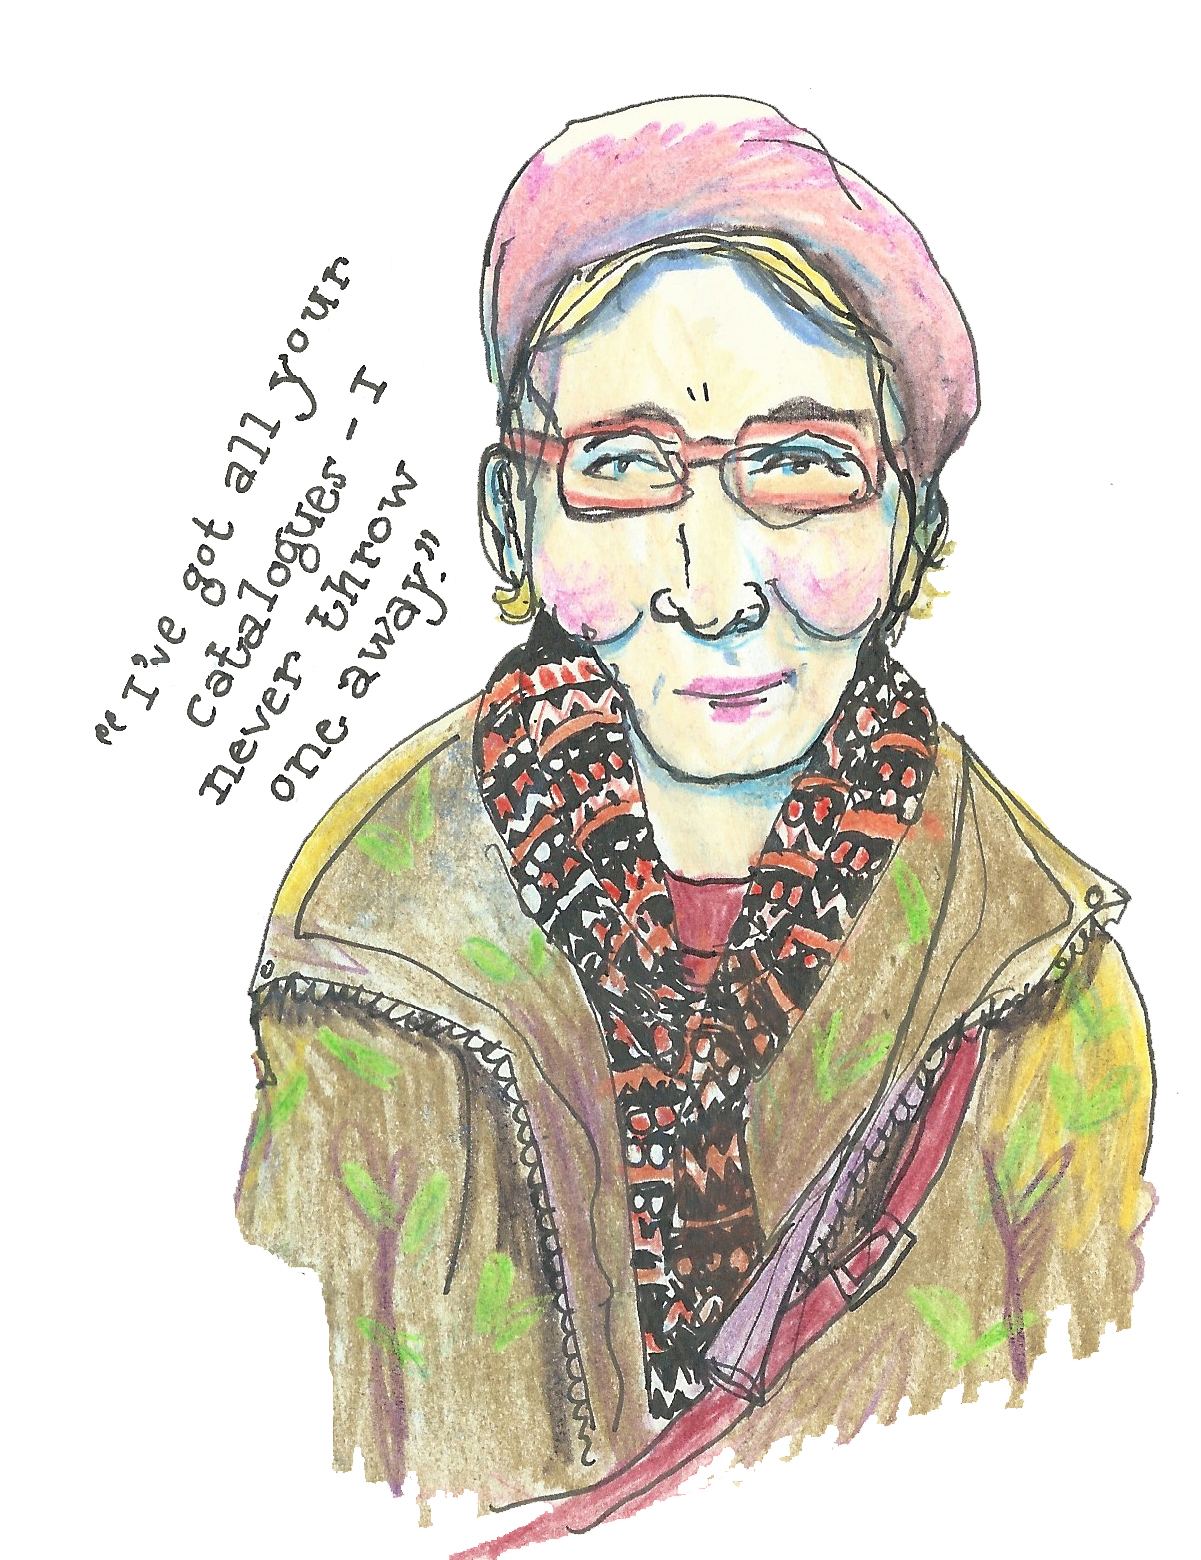 “I’ve got all your
catalogues – I
never throw
one away.”